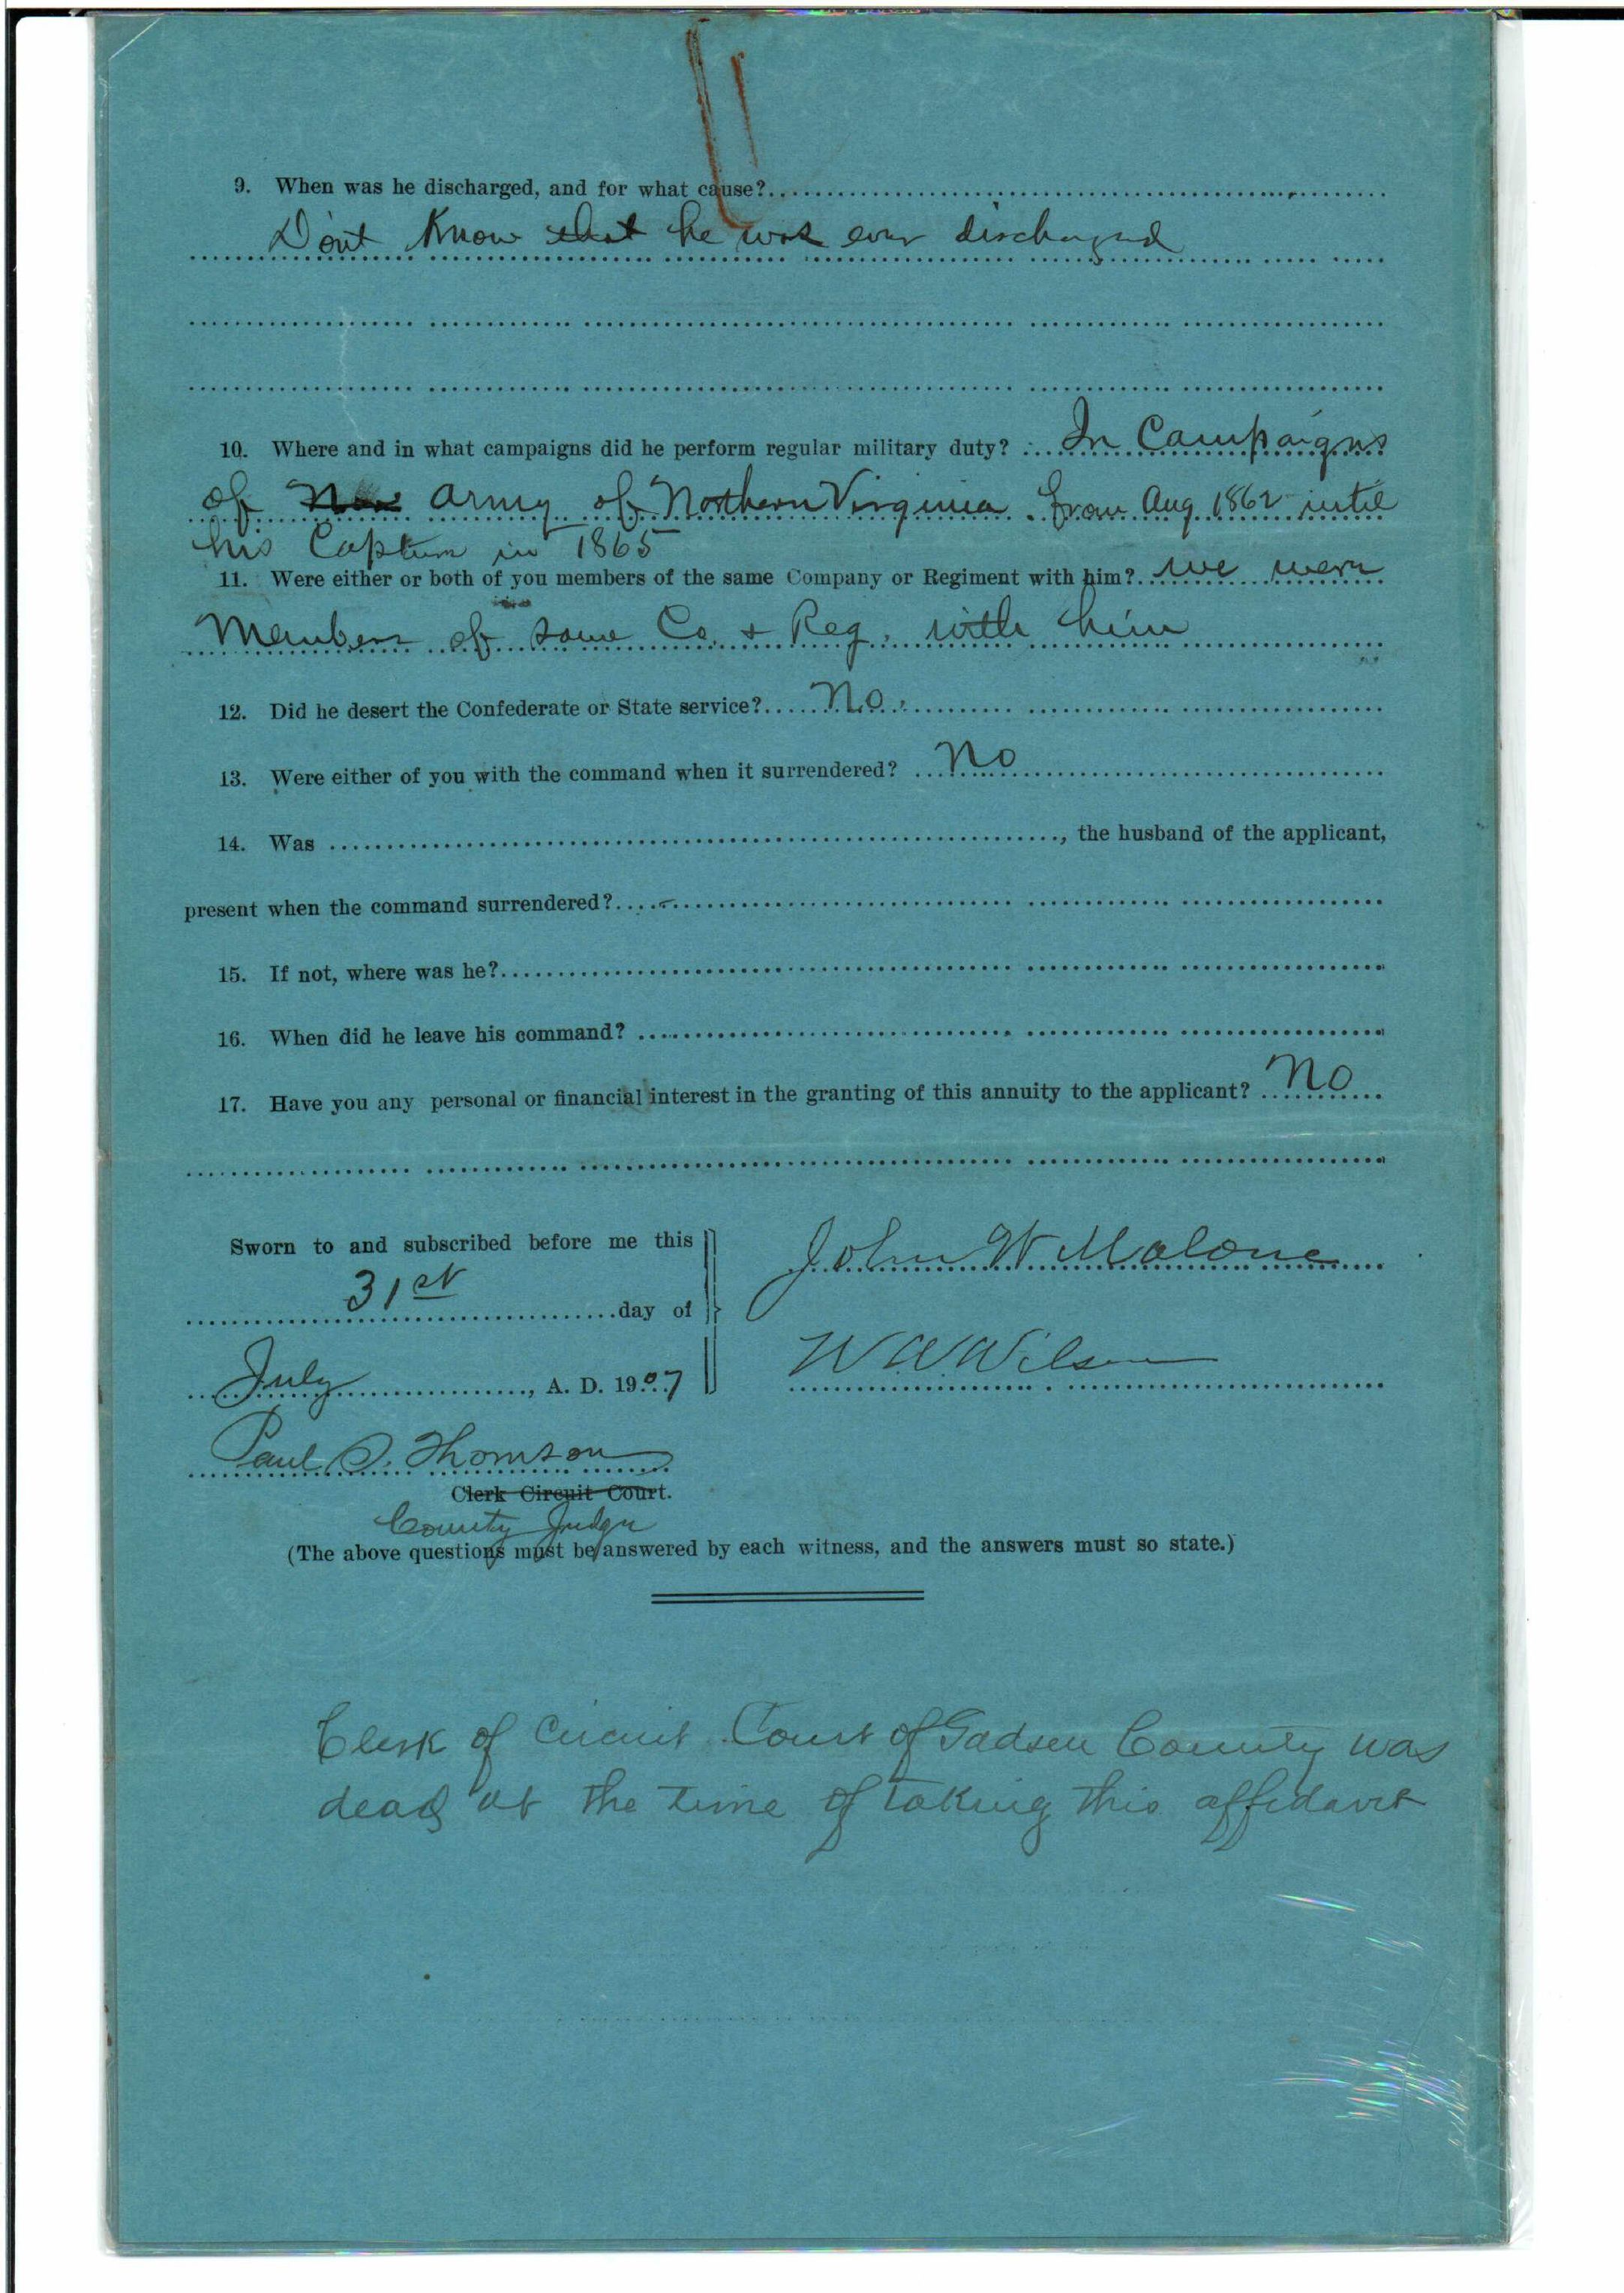 9. When was he discharged, and for what cause?
Dont Know that he was ever discharged
10. Where and in what campaigns did he perform regular military duty? In Campaigns
of Nor army of Northern Virginia from Aug 1862 until
his Capture in 1865
11. Were either or both of you members of the same Company or Regiment with him? we were
Members of same Co. + Reg. with him
12. Did he desert the Confederate or State service? No.
13. Were either of you with the command when it surrendered? No
14. Was ......, the husband of the applicant,
present when the command surrendered?
15. If not, where was he?
16. When did he leave his command?
17. Have you any personal or financial interest in the granting of this annuity to the applicant? No
Sworn to and subscribed before me this
31st day of
July, A. D. 1907
John W Malone
W W Wilson
Paul S. Thomson
Clerk Circuit Court.
County Judge
(The above questions must be answered by each witness, and the answers must so state.)
Clerk of Circuit Court of Gadsen County was
dead at the time of taking this affidavit